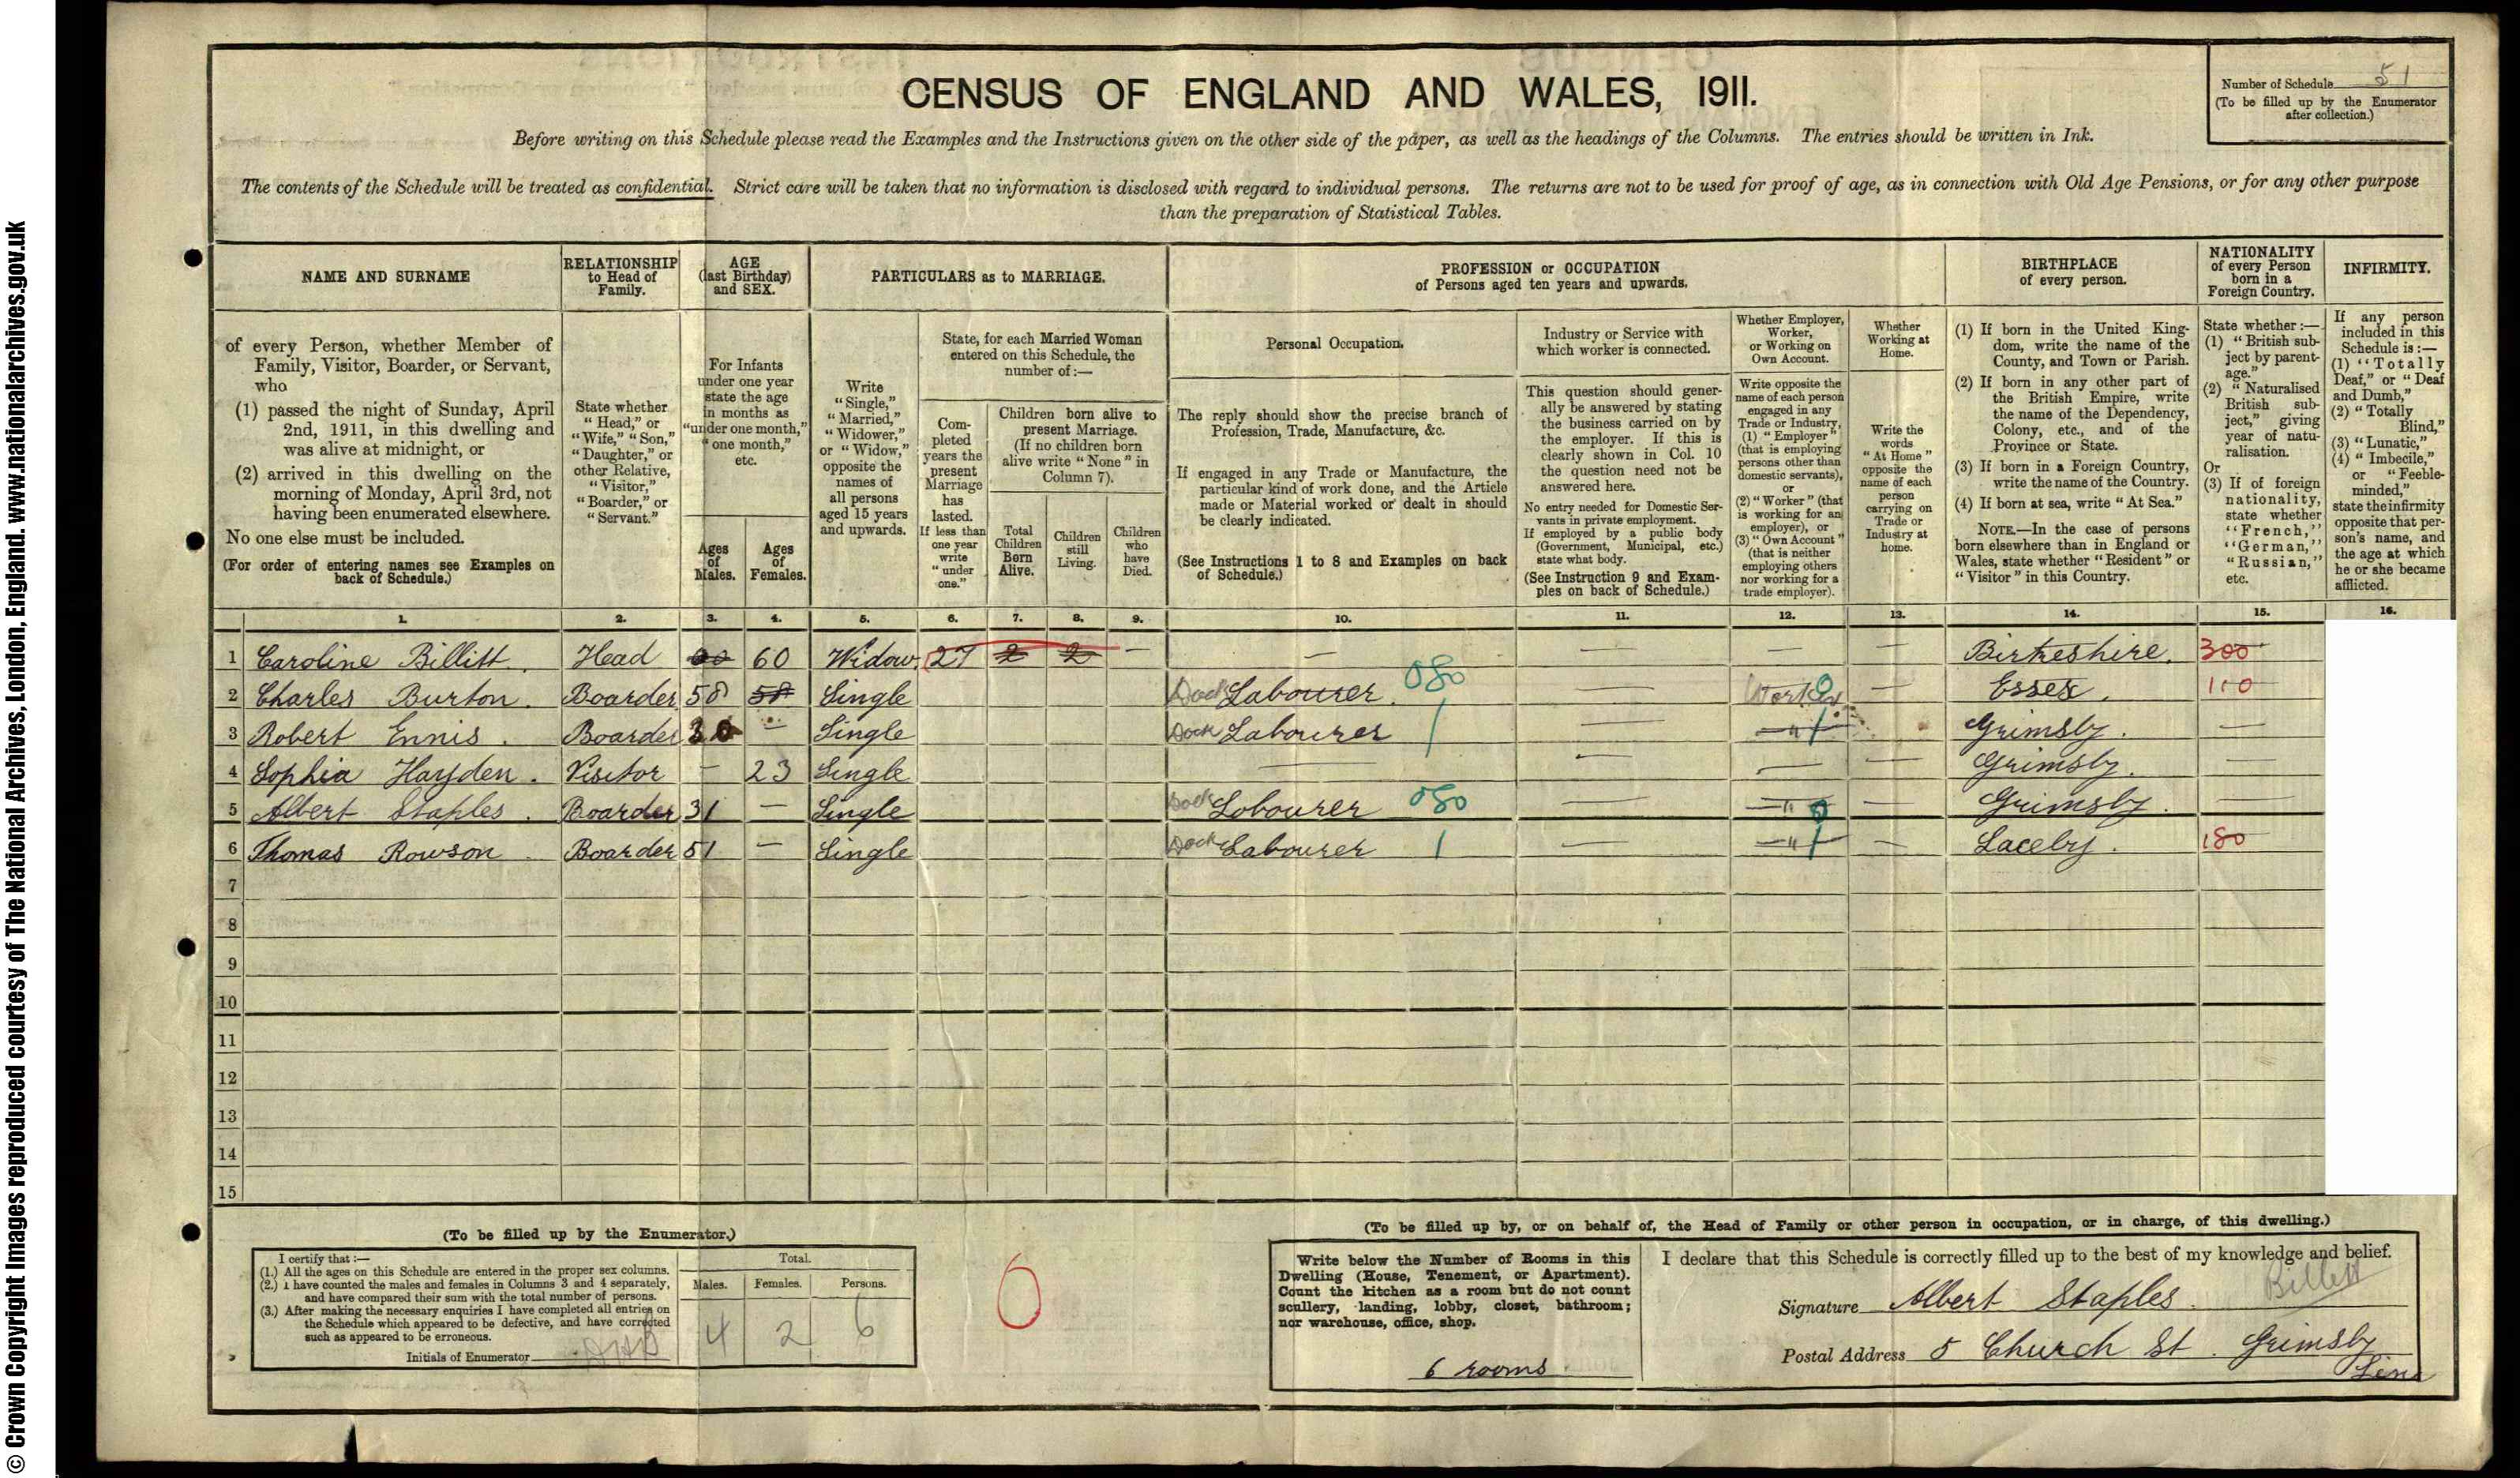 © Crown Copyright Images reproduced courtesy of The National Archives, London, England. www.nationalarchives.gov.uk
CENSUS OF ENGLAND AND WALES, 1911.
Number of Schedule 51
(To be filled up by the Enumerator
after collection.)
Before writing on this Schedule please read the Examples and the Instructions given on the other side of the paper, as well as the headings of the Columns. The entries should be written in Ink.
The contents of the Schedule will be treated as confidential. Strict care will be taken that no information is disclosed with regard to individual persons. The returns are not to be used for proof of age, as in connection with Old Age Pensions, or for any other purpose
than the preparation of Statistical Tables.
NAME AND SURNAME
of every Person, whether Member of
Family, Visitor, Boarder, or Servant,
who
(1) passed the night of Sunday, April
2nd, 1911, in this dwelling and
was alive at midnight, or
(2) arrived in this dwelling on the
morning of Monday, April 3rd, not
having been enumerated elsewhere.
No one else must be included.
(For order of entering names see Examples on
back of Schedule.)
RELATIONSHIP
to Head of
Family.
State whether
"Head," or
"Wife," "Son,"
"Daughter," or
other Relative,
"Visitor,"
"Boarder," or
"Servant."
AGE
(last Birthday)
and SEX.
For Infants
under one year
state the age
in months as
"under one month,"
"one month,"
etc.
Ages
of
Males.
Ages
of
Females.
PARTICULARS as to MARRIAGE.
Write
"Single,"
"Married,"
"Widower,"
or "Widow,"
opposite the
names of
all persons
aged 15 years
and upwards.
State, for each Married Woman
entered on this Schedule, the
number of:—
Com-
pleted
years the
present
Marriage
has
lasted.
If less than
one year
write
"under
one."
Children born alive to
present Marriage.
(If no children born
alive write "None" in
Column 7).
Total
Children
Born
Alive.
Children
still
Living.
Children
who
have
Died.
PROFESSION or OCCUPATION
of Persons aged ten years and upwards.
Personal Occupation.
The reply should show the precise branch of
Profession, Trade, Manufacture, &c.
If engaged in any Trade or Manufacture, the
particular kind of work done, and the Article
made or Material worked or dealt in should
be clearly indicated.
(See Instructions 1 to 8 and Examples on back
of Schedule.)
Industry or Service with
which worker is connected.
This question should gener-
ally be answered by stating
the business carried on by
the employer. If this is
clearly shown in Col. 10
the question need not be
answered here.
No entry needed for Domestic Ser-
vants in private employment.
If employed by a public body
(Government, Municipal, etc.)
state what body.
(See Instruction 9 and Exam-
ples on back of Schedule.)
Whether Employer,
Worker,
or Working on
Own Account.
Write opposite the
name of each person
engaged in any
Trade or Industry,
(1) "Employer"
(that is employing
persons other than
domestic servants),
or
(2) "Worker" (that
is working for an
employer), or
(3) "Own Account"
(that is neither
employing others
nor working for a
trade employer).
Whether
Working at
Home.
Write the
words
"At Home"
opposite the
name of each
person
carrying on
Trade or
Industry at
home.
BIRTHPLACE
of every person.
(1) If born in the United King-
dom, write the name of the
County, and Town or Parish.
(2) If born in any other part of
the British Empire, write
the name of the Dependency,
Colony, etc., and of the
Province or State.
(3) If born in a Foreign Country,
write the name of the Country.
(4) If born at sea, write "At Sea."
NOTE.—In the case of persons
born elsewhere than in England or
Wales, state whether "Resident" or
"Visitor" in this Country.
NATIONALITY
of every Person
born in a
Foreign Country.
State whether:—
(1) "British sub-
ject by parent-
age."
(2) "Naturalised
British sub-
ject," giving
year of natu-
ralisation.
Or
(3) If of foreign
nationality,
state whether
"French,"
"German,"
"Russian,"
etc.
INFIRMITY.
If any person
included in this
Schedule is:—
(1) "Totally
Deaf," or "Deaf
and Dumb,"
(2) "Totally
Blind,"
(3) "Lunatic,"
(4) "Imbecile,"
or "Feeble-
minded,"
state the infirmity
opposite that per-
son's name, and
the age at which
he or she became
afflicted.
1. 2. 3. 4. 5. 6. 7. 8. 9. 10. 11. 12. 13. 14. 15. 16.
1 Caroline Billitt Head 60 Widow 27 2 2 — — — — — 300
2 Charles Burton Boarder 58 58 Single Dock Labourer 080 — Worker 0 — Essex 110
3 Robert Ennis Boarder 30 — Single Dock Labourer 1 — " 1 Grimsby —
4 Sophia Hayden Visitor — 23 Single — — — — Grimsby —
5 Albert Staples Boarder 31 — Single Dock Lobourer 080 — " 0 — Grimsby —
6 Thomas Rowson Boarder 51 — Single Dock Labourer 1 — " 1 — Laceby 180
7
8
9
10
11
12
13
14
15
(To be filled up by the Enumerator.)
I certify that:—
(1.) All the ages on this Schedule are entered in the proper sex columns.
(2.) I have counted the males and females in Columns 3 and 4 separately,
and have compared their sum with the total number of persons.
(3.) After making the necessary enquiries I have completed all entries on
the Schedule which appeared to be defective, and have corrected
such as appeared to be erroneous.
Initials of Enumerator
Total.
Males. Females. Persons.
4 2 6
6
(To be filled up by, or on behalf of, the Head of Family or other person in occupation, or in charge, of this dwelling.)
Write below the Number of Rooms in this
Dwelling (House, Tenement, or Apartment).
Count the kitchen as a room but do not count
scullery, landing, lobby, closet, bathroom;
nor warehouse, office, shop.
6 rooms
I declare that this Schedule is correctly filled up to the best of my knowledge and belief.
Billett
Signature Albert Staples
Postal Address 5 Church St. Grimsby